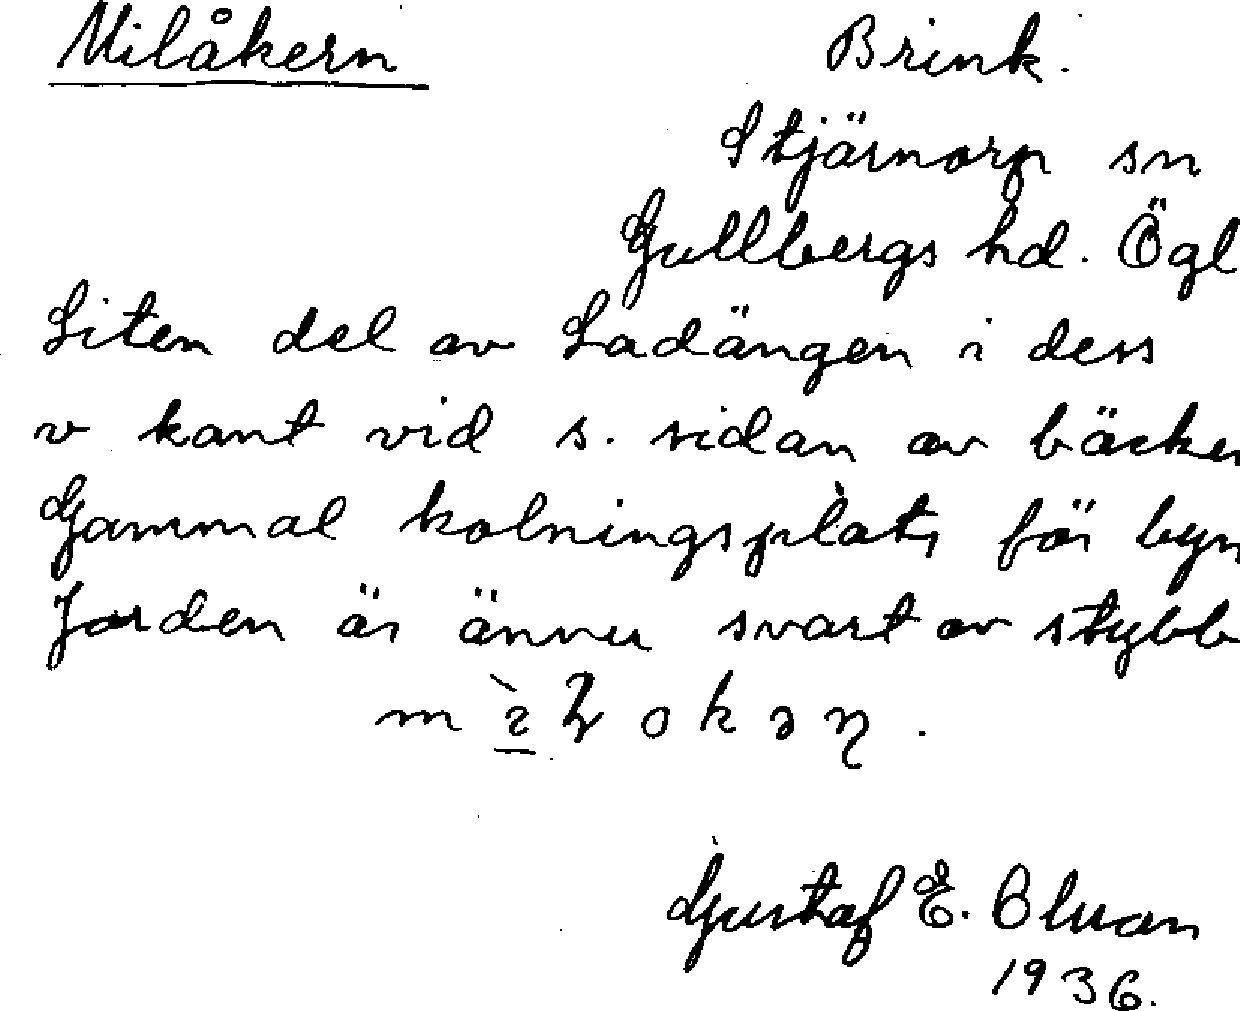 Milåkern Brink.
Stjärnorp sn
Gullbergs hd. Ögl
Liten del av Ladängen i dess
v kant vid s. sidan av bäcken
Gammal kolningsplats för byn
Jorden är ännu svart av stybb
Gustaf E. Olsson
1936.